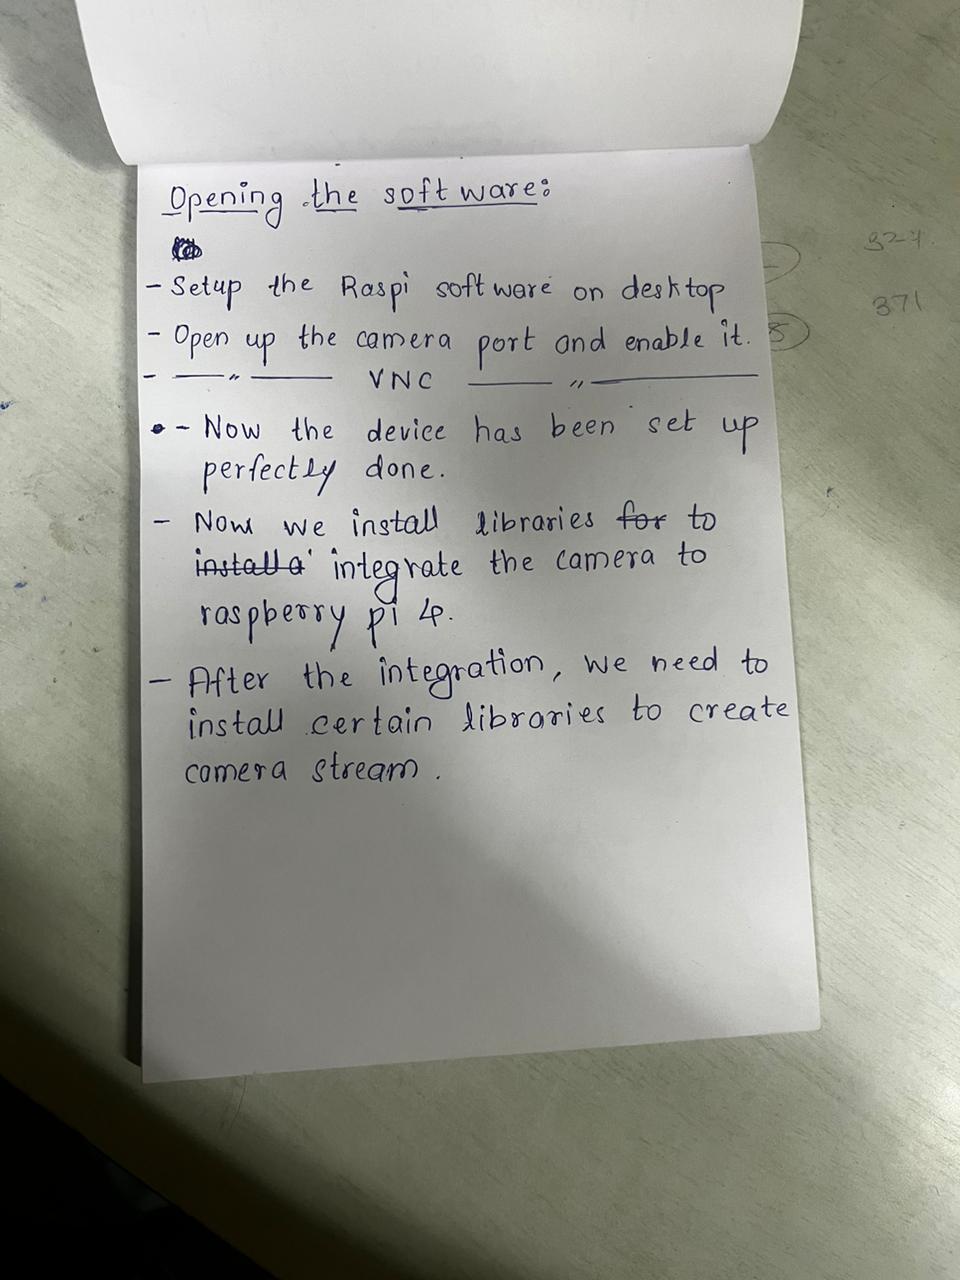 Opening the software:
- Setup the Raspi software on desktop
- Open up the camera port and enable it.
- —〃— VNC —〃—
- Now the device has been set up
perfectly done.
- Now we install libraries for to
install a integrate the camera to
raspberry pi 4.
- After the integration, we need to
install certain libraries to create
camera stream.
324
371
8